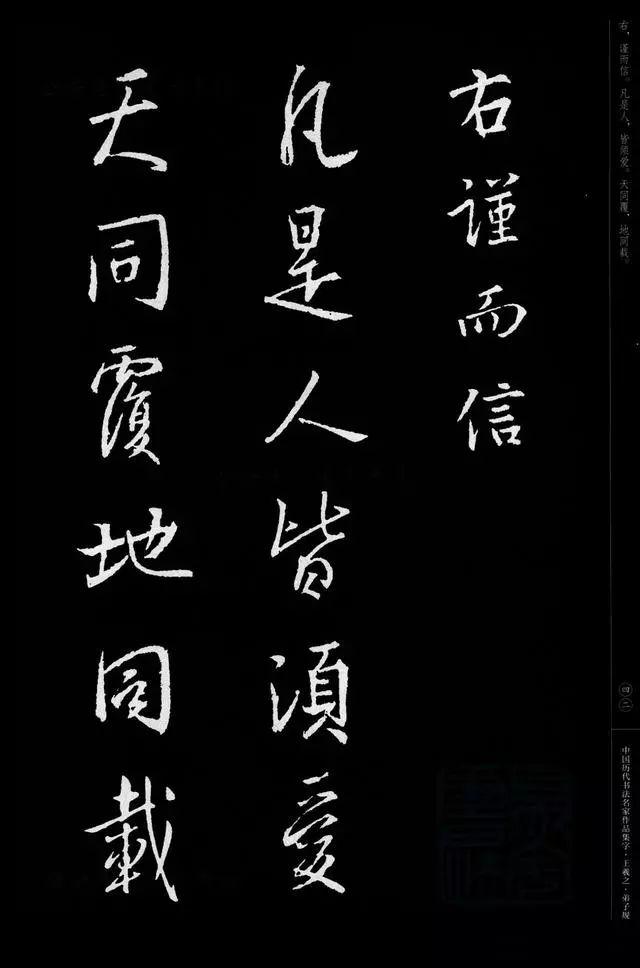 右谨而信
凡是人皆須愛
天同覆地同載
右，谨而信。凡是人，皆须爱。天同覆，地同载。
四二
中国历代书法名家作品集字·王羲之·弟子规